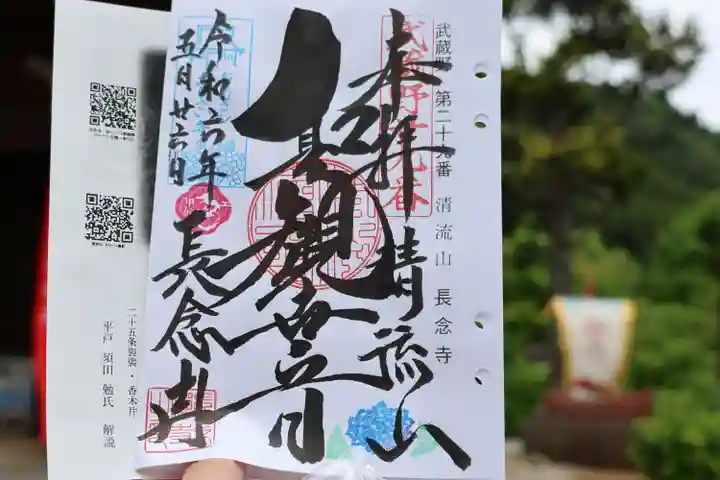 武蔵野 第二十九番 清流山 長念寺
奉拝 清流山
聖観世音
令和六年
五月廿六日
長念寺
二十五条袈裟・香木片
平戸 須田 勉氏 解説